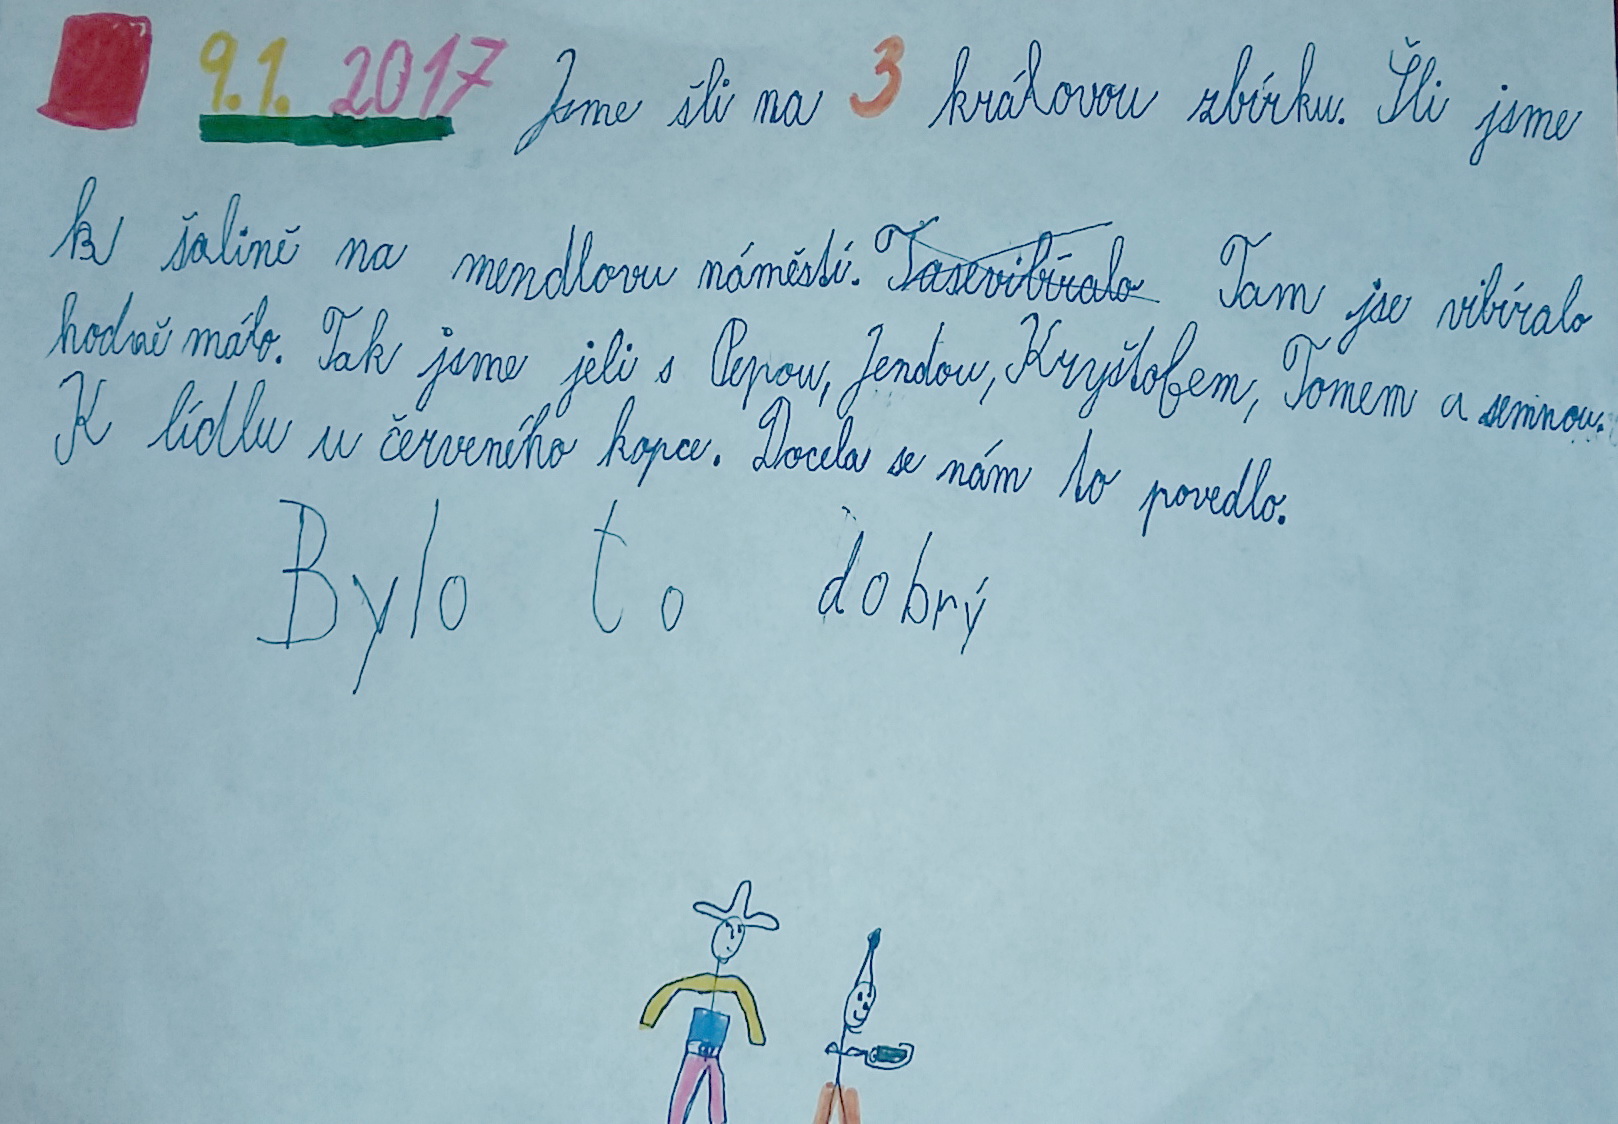 9.1. 2017 Jsme šli na 3 královou zbírku. Šli jsme
k šalině na mendlovu náměstí. Tasevibíralo Tam jse vibíralo
hodně málo. Tak jsme jeli s Pepou, Jendou, Kryštofem, Tomem a semnou.
K lídlu u červeného kopce. Docela se nám to povedlo.
Bylo to dobrý